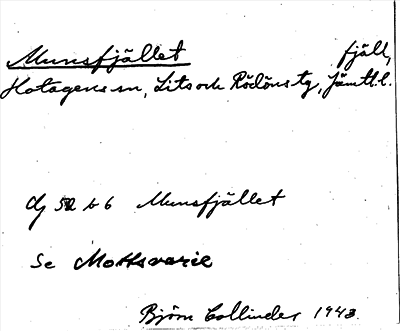 Munsfjället fjäll,
Hotagens sn, Lits och Rödöns tg, Jämtl. l.
dj 52 b 6 Munsfjället
Se Mottsvarie
Björn Collinder 1943.